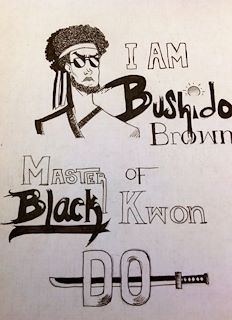 I AM
Bushido
Brown
Master of
Black Kwon
DO